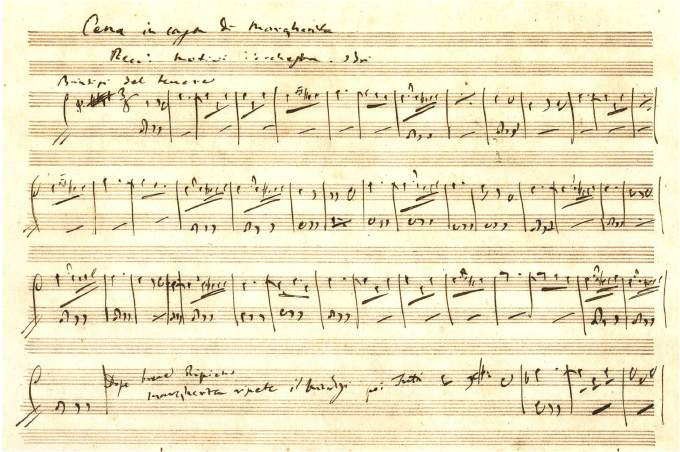 Cena in casa di Margherita
Motivi d'orchestra
Brindisi del tenore
Dopo breve
Margherita ripete il brindisi poi Tutti